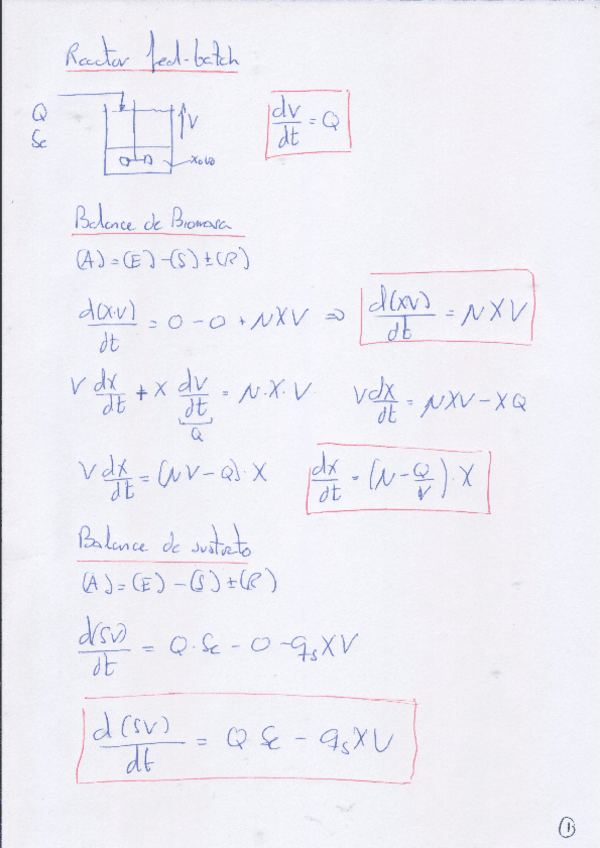 Reactor fed-batch
Q
Se
V
dV/dt = Q
Balance de Biomasa
(A) = (E) - (S) ± (R)
d(X·V)/dt = 0 - 0 + μXV ⇒ d(XV)/dt = μXV
V dX/dt + X dV/dt = μ·X·V   V dX/dt = μXV - XQ
Q
V dX/dt = (μV - Q)·X   dX/dt = (μ - Q/V)·X
Balance de sustrato
(A) = (E) - (S) ± (R)
d(SV)/dt = Q·Se - 0 - qsXV
d(SV)/dt = Q Se - qsXV
1